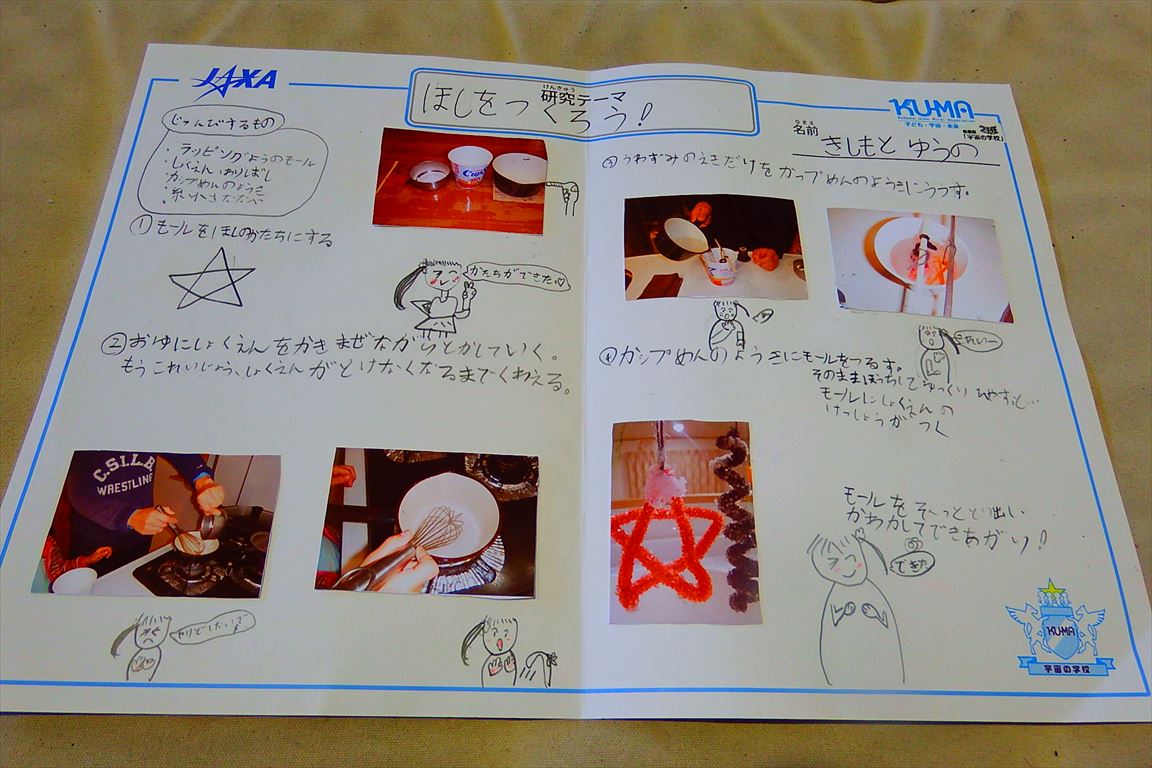 JAXA
けんきゅう
研究テーマ
ほしをつくろう!
KU-MA
子ども・宇宙・未来
「宇宙の学校」
なまえ
名前
きしもと ゆうの
じゅんびするもの
・ラッピングようのモール
・しょくえん わりばし
・カップめんのようき
・糸・小さななべ
①モールをほしのかたちにする
かたちができた♡
②おゆにしょくえんをかきまぜながらとかしていく。
もうこれいじょう、しょくえんがとけなくなるまでくわえる。
C.S.U.B.
WRESTLING
③うわずみのえきだけをカップめんのようきにうつす。
きれいー
④カップめんのようきにモールをつるす。
そのままぼっちしてゆっくりひやすと…
モールにしょくえんの
けっしょうがつく
モールをそ〜っととり出し
かわかしてできあがり!
できた
KU-MA
宇宙の学校